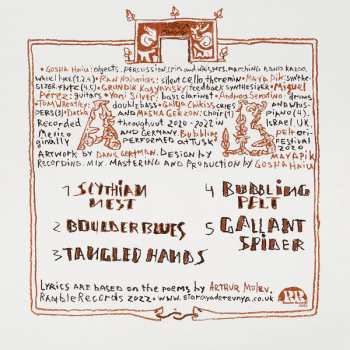 •Gosha Hniu: objects, percussion, spin and whispers, marching band kazoo,
wheel lyre (1,2,4) • Ran Nahmias: silent cello, theremin • Maya Pik: synthe-
sizer, flute (4,5) • Grundik Kasyansky: feedback synthesizer • Miguel
Perez: guitars • Yoni Silver: bass clarinet • Andrea Serafino: drums
Tom Wheatley: double bass • Galya Chikiss: and whis-
pers (3) • Dasha and Masha Gerzon: choir (4) piano (4).
Recorded throughout 2020-2022 in Israel, UK,
Mexico and Germany. Bubbling pelt ori-
ginally performed at TUSK festival
2020
Artwork by Danil Gertman. Design by Maya Pik
Recording, mix, mastering and production by Gosha Hniu
1 Scythian
Nest
2 Boulder Blues
3 Tangled Hands
4 Bubbling
Pelt
5 Gallant
Spider
Lyrics are based on the poems by Arthur Molev.
Ramble Records 2022 • www.starayaderevnya.co.uk